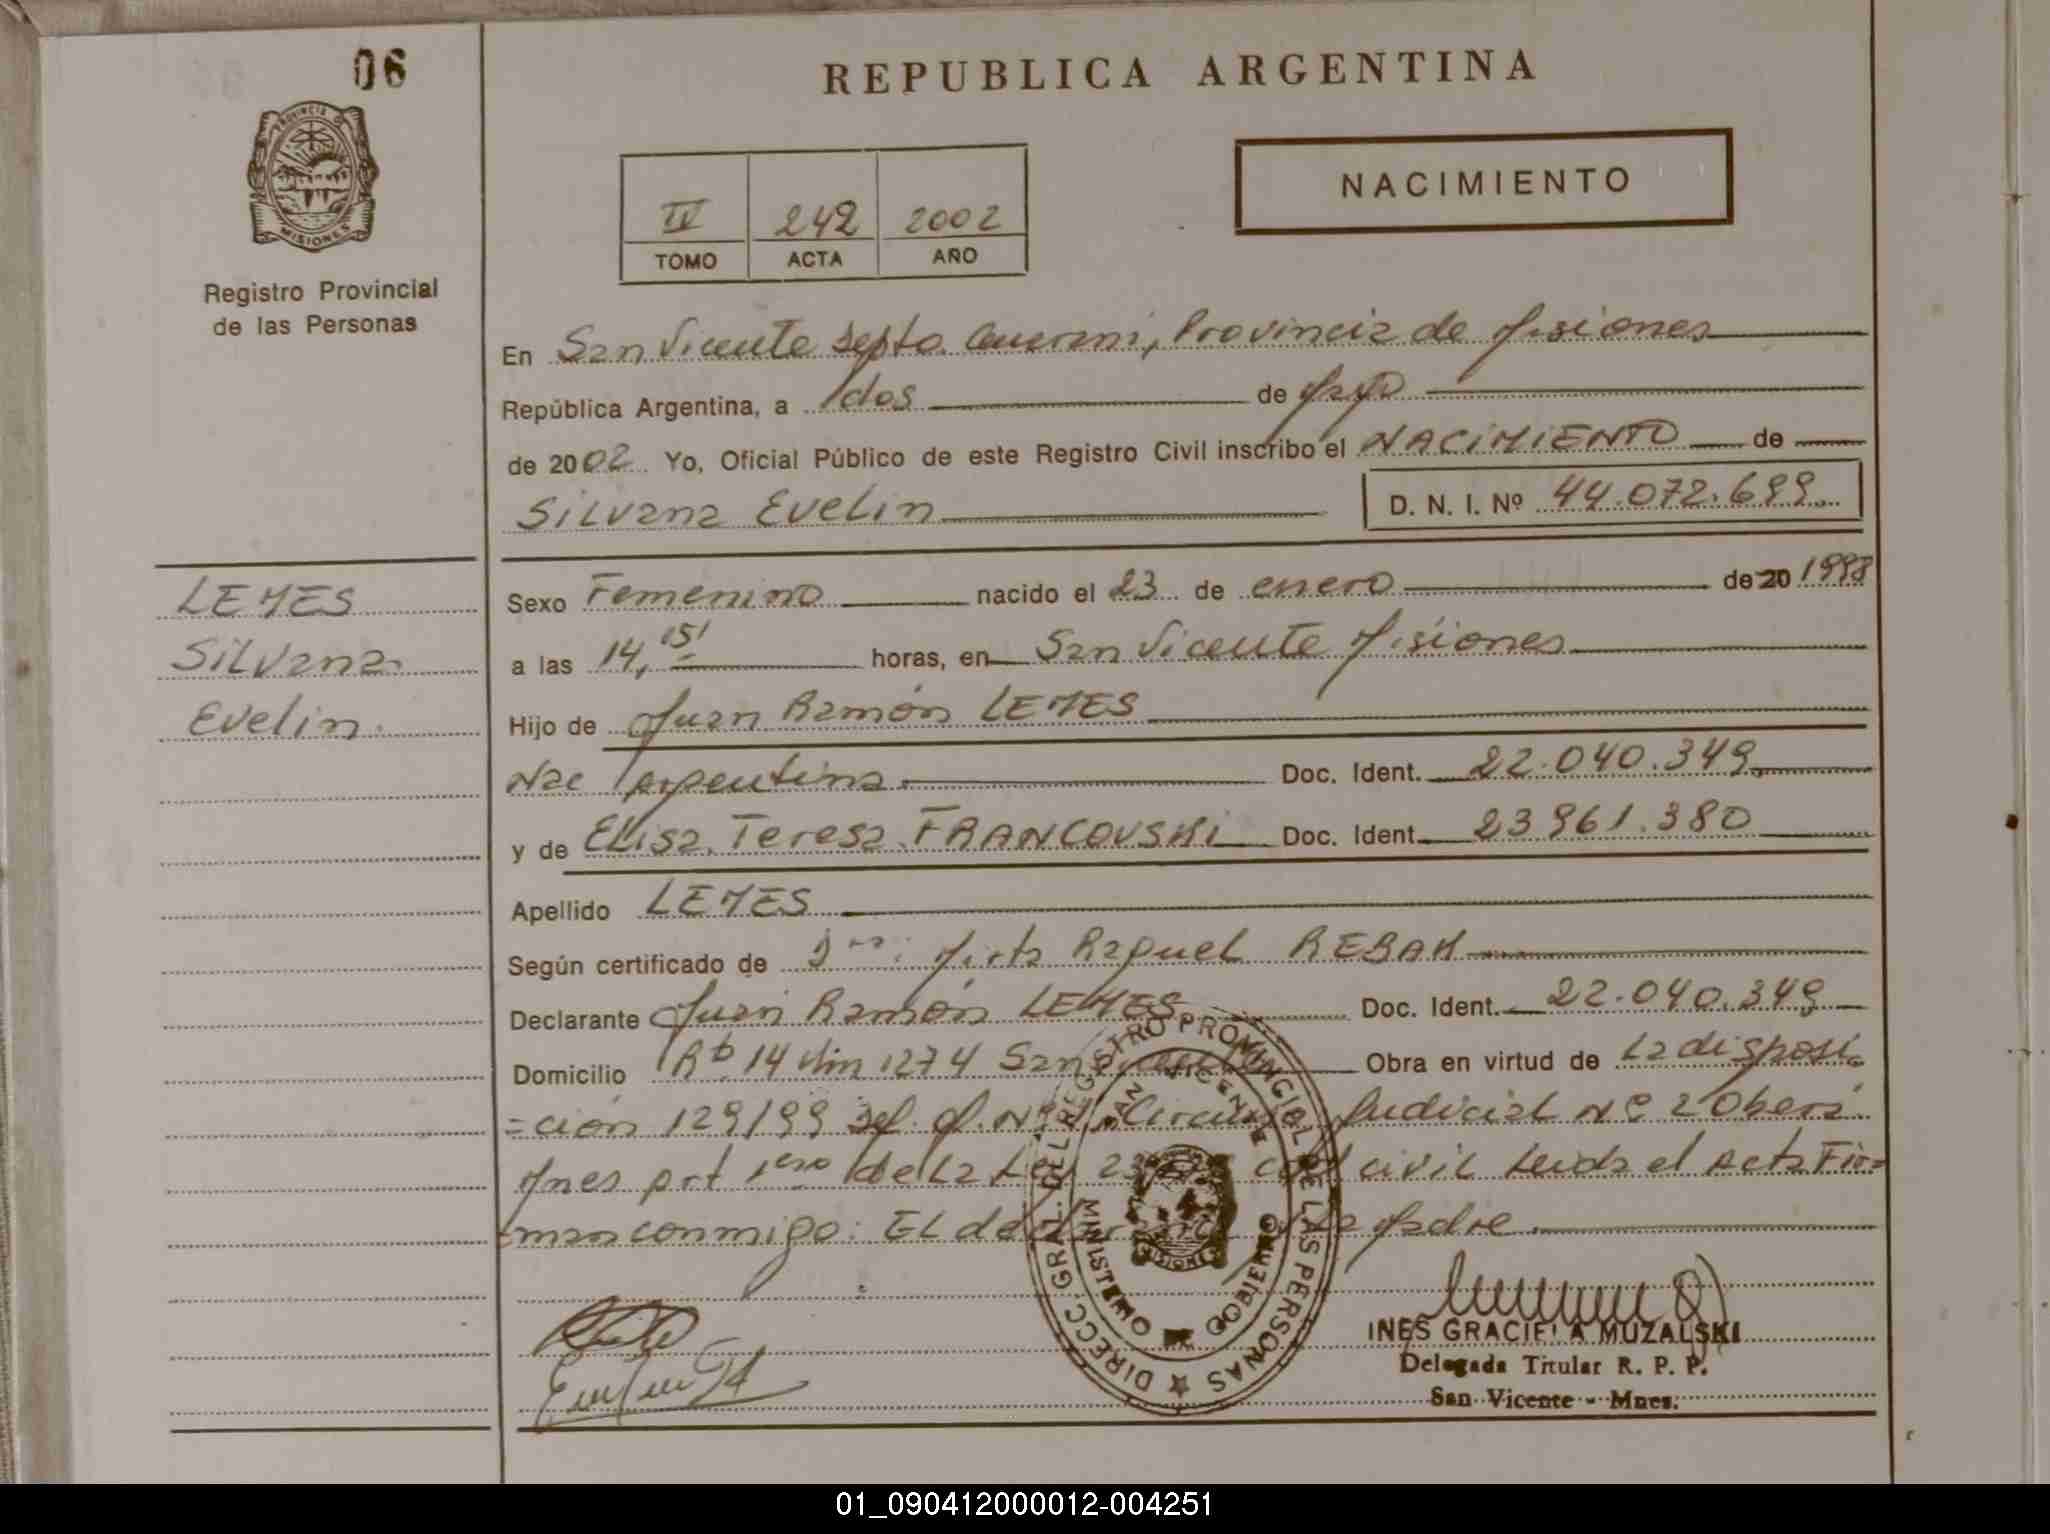 06
REPUBLICA ARGENTINA
PROVINCIA D MISIONES
Registro Provincial
de las Personas
IV 242 2002
TOMO ACTA AÑO
NACIMIENTO
En San Vicente Depto. Guarani, Provincia de Misiones
República Argentina, a dos de Mayo
de 2002 Yo, Oficial Público de este Registro Civil inscribo el NACIMIENTO de
Silvana Evelin
D. N. I. Nº 44.072.699
LEMES
Silvana
Evelin.
Sexo Femenino nacido el 23 de enero de 20 1998
a las 14,15' horas, en San Vicente Misiones
Hijo de Juan Ramón LEMES
Nac Argentina. Doc. Ident. 22.040.349
y de Elisa Teresa FRANCOVSKI Doc. Ident. 23961.380
Apellido LEMES
Según certificado de Dra: Mirta Raquel REBAK
Declarante Juan Ramón LEMES Doc. Ident. 22.040.349
Domicilio Rta 14 Km 1274 San Vicente Obra en virtud de La disposi
=ción 129/99 Judicial Nº 2 Oberá
Mnes Art 1ero de La Ley civil Leida el Acta Fir=
man conmigo: El declarante La Madre.
DIRECC. GRAL. DEL REGISTRO PROVINCIAL DE LAS PERSONAS
SAN VICENTE
MINISTERIO DE GOBIERNO
MISIONES
INES GRACIELA MUZALSKI
Delegada Titular R. P. P.
San Vicente - Mnes.
01_090412000012-004251